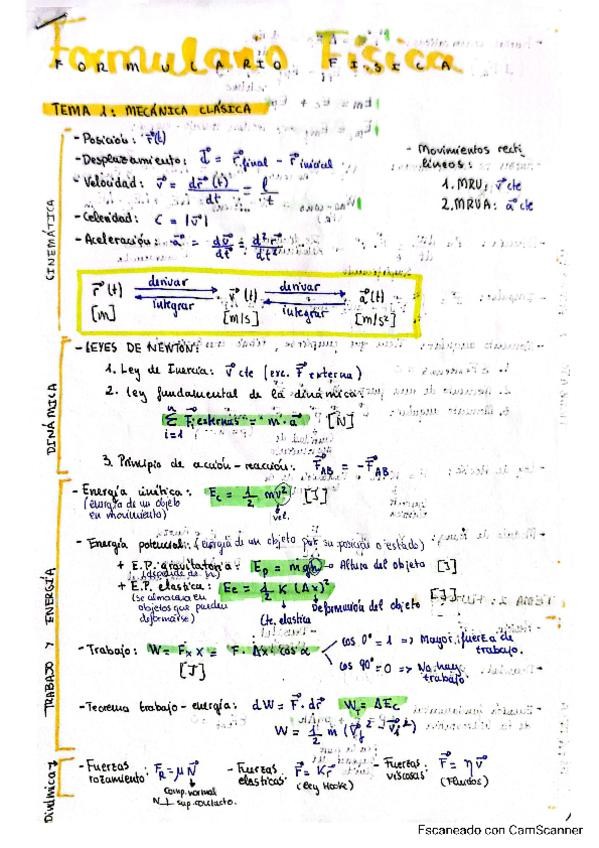 Formulario Física
FORMULARIO FISICA
TEMA 1: MECÁNICA CLÁSICA
CINEMÁTICA
- Posición: r⃗(t)
- Desplazamiento: d⃗ = r⃗ final - r⃗ inicial
- Velocidad: v⃗ = dr⃗(t)/dt = l/t
- Celeridad: C = |v⃗|
- Aceleración: a⃗ = dv⃗/dt = d²r⃗/dt²
- Movimientos recti
líneos:
1. MRU: v⃗ cte
2. MRVA: a⃗ cte
derivar derivar
r⃗(t) v⃗(t) a⃗(t)
integrar integrar
[m] [m/s] [m/s²]
DINÁMICA
- LEYES DE NEWTON:
1. Ley de Inercia: v⃗ cte (exc. F⃗ externa)
2. Ley fundamental de la dinámica:
n
∑ F⃗i externas = m · a⃗ [N]
i=1
3. Principio de acción-reacción: F⃗AB = -F⃗AB
TRABAJO Y ENERGÍA
- Energía cinética: Ec = 1/2 mv² [J]
(energía de un objeto
en movimiento)
vel.
- Energía potencial: (energía de un objeto por su posición o estado)
+ E.P. gravitatoria: Ep = mgh → Altura del objeto [J]
+ E.P. elástica: Ee = 1/2 K (Δx)² [J]
(se almacena en
objetos que pueden
deformarse)
Deformación del objeto
Cte. elástica
- Trabajo: W = Fx x = F · Δx · cos α
cos 0° = 1 => Mayor fuerza de
trabajo.
[J]
cos 90° = 0 => No hay
trabajo.
- Teorema trabajo-energía: dW = F⃗ · dr⃗ WT = ΔEc
W = 1/2 m (v⃗f² - v⃗i²)
Dinámica
- Fuerzas
rozamiento: F⃗R = μN⃗
comp. normal
N ⊥ sup. contacto.
- Fuerzas
elásticas: F⃗ = Kr⃗
(Ley Hooke)
- Fuerzas
viscosas: F⃗ = ηv⃗
(Fluidos)
Escaneado con CamScanner